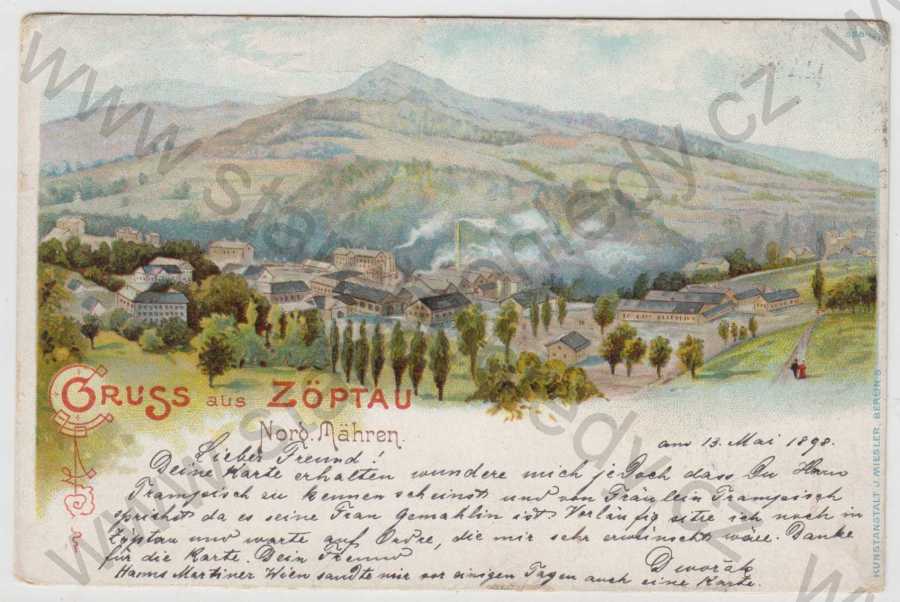 GRUSS aus ZÖPTAU
Nord. Mähren.
am 13. Mai 1898.
Lieber Freund!
Deine Karte erhalten wundere mich jedoch dass Du Hans
Trampisch zu kennen scheinst und von Fräulein Trampisch
sprichst da es seine Frau Gemaklin ist Verläufig sitze ich noch in
Zöptau und warte auf Ordre, die mir sehr erwünscht wäre. Danke
für die Karte. Dein Freund
Dworák
Hanns Martiner Wien sandte mir vor einigen Tagen auch eine Karte.
KUNSTANSTALT J. MIESLER, BERLIN S
www.stare-pohledy.cz